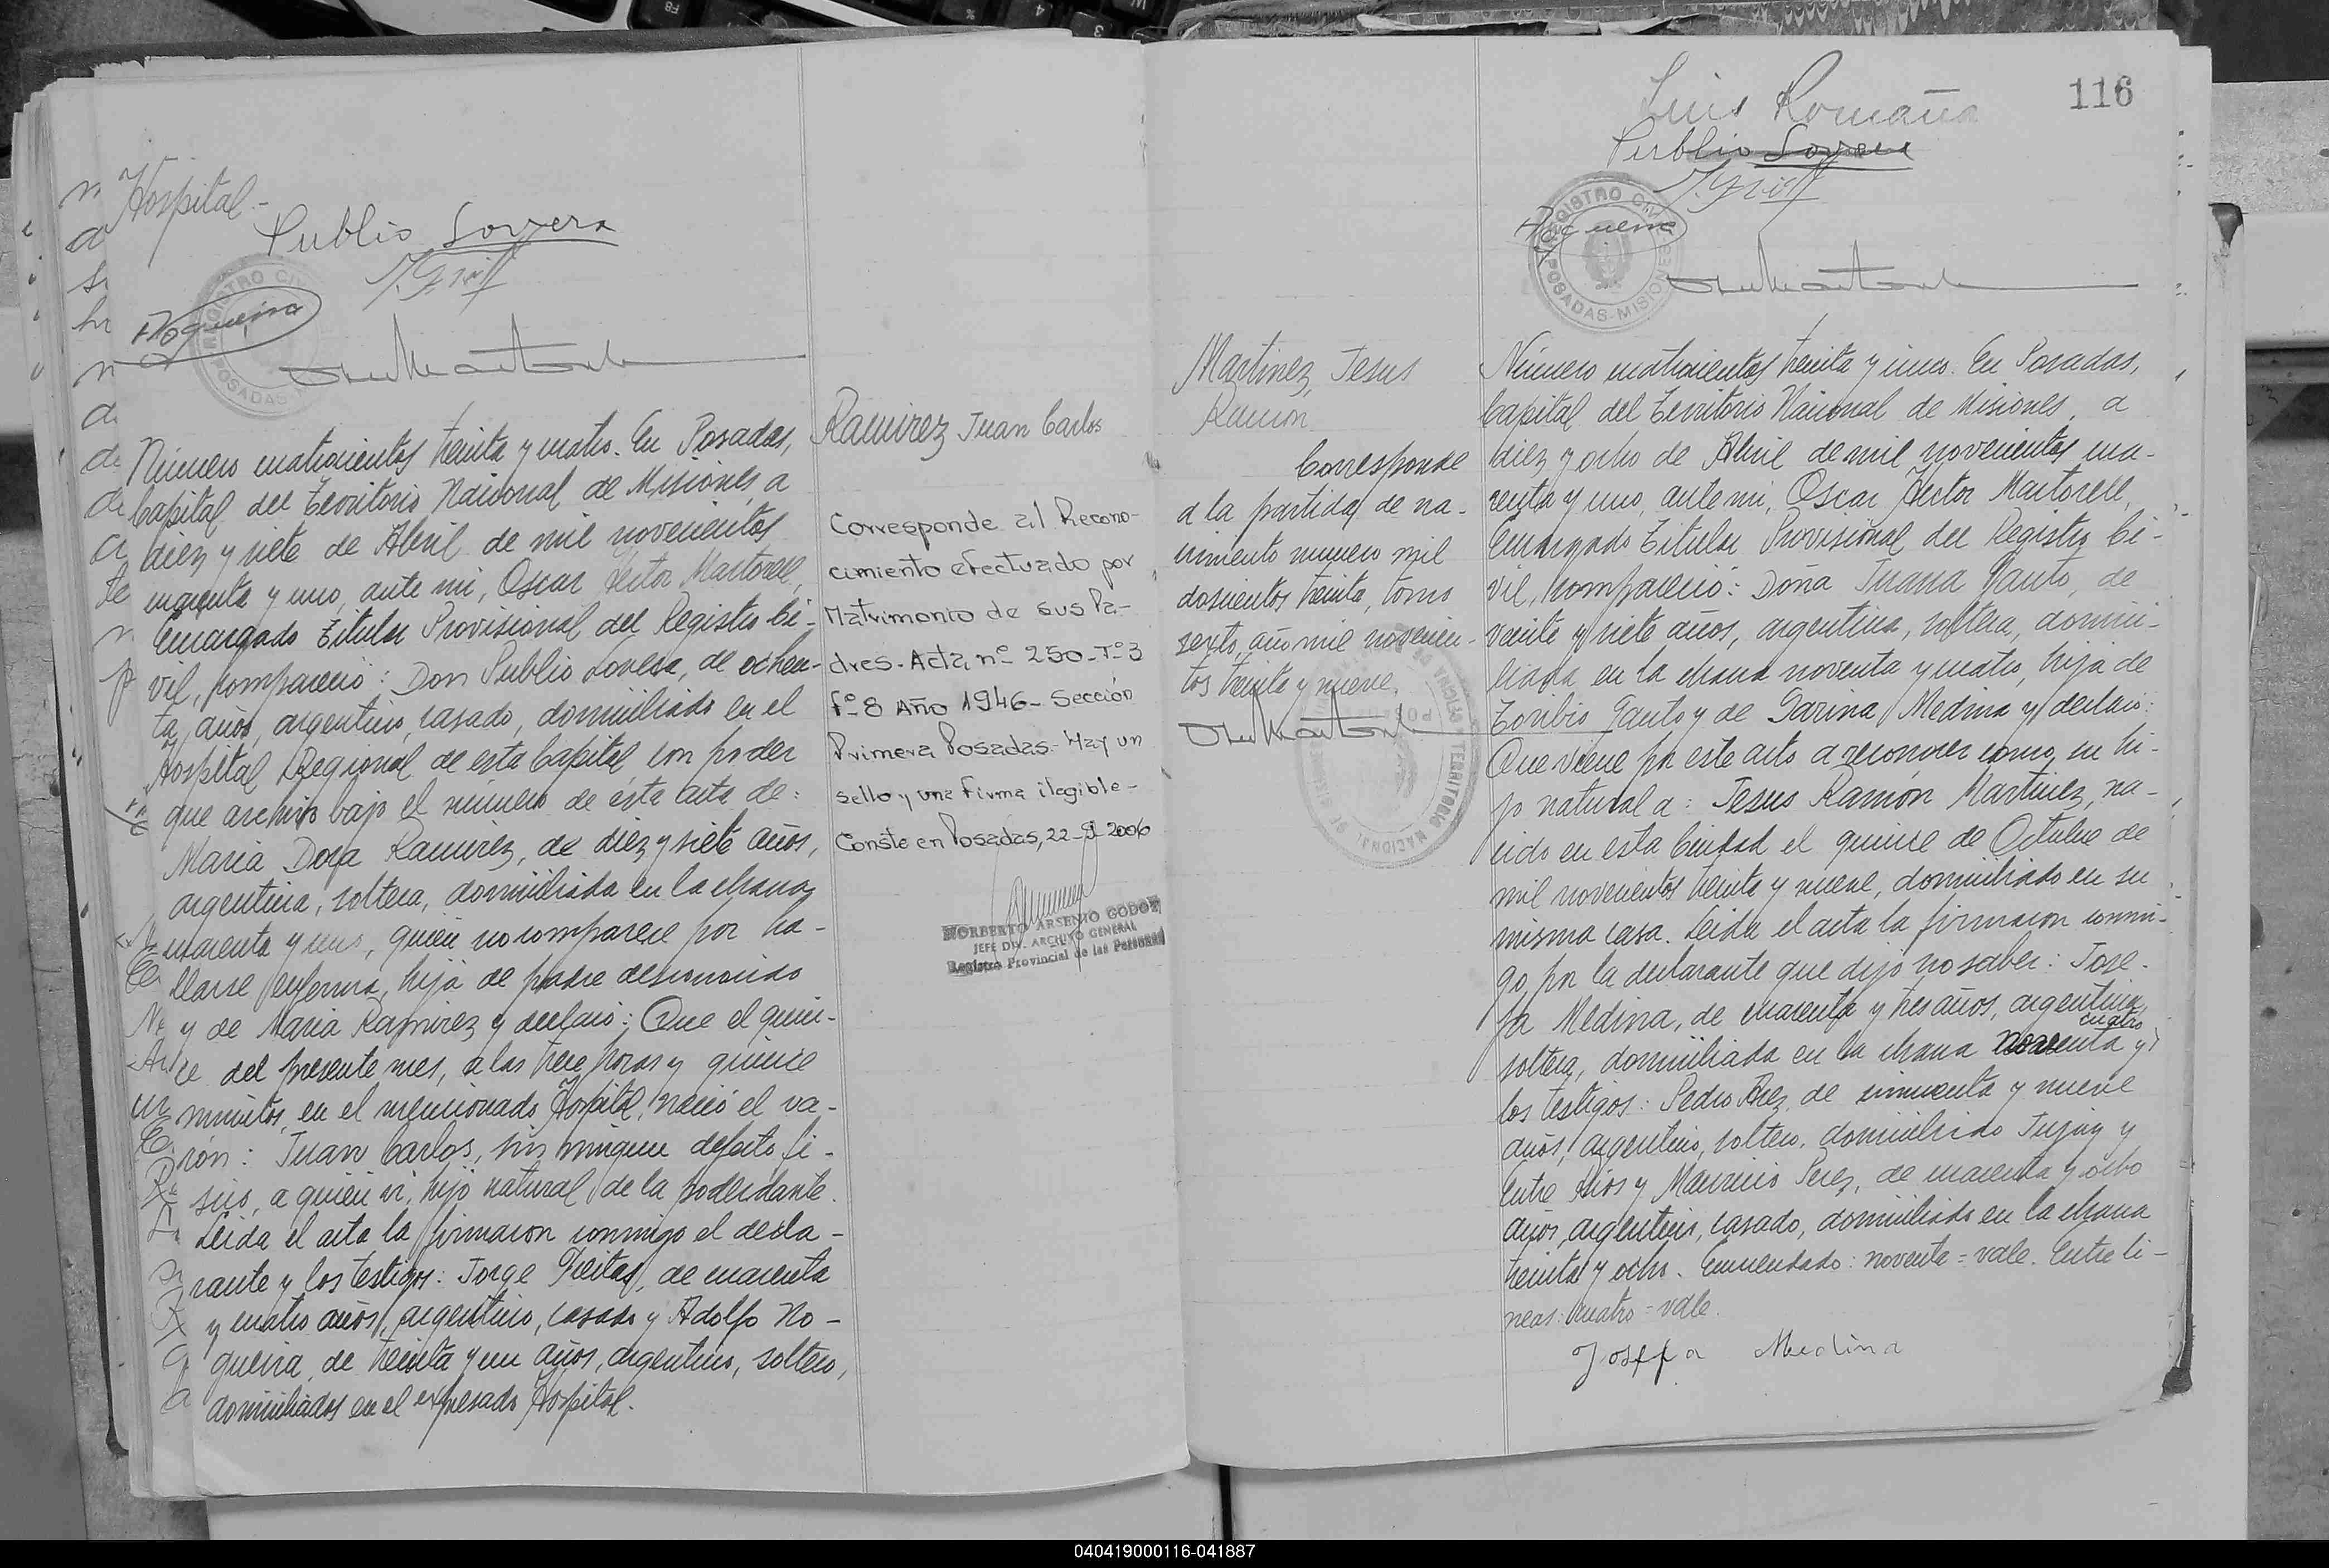 Hospital.-
Publio Lovera
Nogueira
REGISTRO CIVIL
POSADAS
Número cuatrocientos treinta y cuatro. En Posadas,
Capital del Territorio Nacional de Misiones, a
diez y siete de Abril de mil novecientos
cuarenta y uno, ante mi, Oscar Hector Martorell,
Encargado Titular Provisional del Registro Ci-
vil, compareció: Don Publio Lovera, de ochen-
ta años, argentino, casado, domiciliado en el
Hospital Regional de esta Capital con poder
que archivo bajo el número de ésta acta de:
Maria Dora Ramirez, de diez y siete años,
argentina, soltera, domiciliada en la chacra
cuarenta y uno, quien no comparece por ha-
llarse enferma, hija de padre desconocido
y de Maria Ramirez y declaró: Que el quin-
ce del presente mes, a las trece horas y quince
minutos, en el mencionado Hospital, nació el va-
rón: Juan Carlos, sin ningun defecto fi-
sico, a quien vi, hijo natural de la poderdante.
Leida el acta la firmaron conmigo el decla-
rante y los testigos: Jorge Freitas, de cuarenta
y cuatro años, argentino, casado y Adolfo No-
gueira, de treinta y un años, argentino, soltero,
domiciliados en el expresado Hospital.
Ramirez Juan Carlos
Corresponde al Recono-
cimiento efectuado por
Matrimonio de sus Pa-
dres. Acta nº 250-Tº3
fº 8 Año 1946- Sección
Primera Posadas- Hay un
sello y una firma ilegible-
Conste en Posadas, 22-9-2006
NORBERTO ARSENIO GODOY
JEFE DIV. ARCHIVO GENERAL
Registro Provincial de las Personas
116
Luis Romaña
Publio Lovera
Nogueira
REGISTRO CIVIL
POSADAS-MISIONES
Martinez, Jesus
Ramon
Corresponde
a la partida de na-
cimiento numero mil
doscientos treinta, tomo
sexto, año mil novecien-
tos treinta y nueve.
Número cuatrocientos treinta y cinco. En Posadas,
Capital del Territorio Nacional de Misiones, a
diez y ocho de Abril de mil novecientos cua-
renta y uno, ante mi, Oscar Hector Martorell,
Encargado Titular Provisional del Registro Ci-
vil, compareció: Doña Juana Gauto, de
veinte y siete años, argentina, soltera, domici-
liada en la chacra noventa y cuatro, hija de
Toribio Gauto y de Garina Medina y declaró:
Que viene por este acto a reconocer como su hi-
jo natural a: Jesus Ramón Martinez, na-
cido en esta Ciudad el quince de Octubre de
mil novecientos treinta y nueve, domiciliado en su
misma casa. Leida el acta la firmaron conmi-
go, por la declarante que dijo no saber: Jose-
fa Medina, de cuarenta y tres años, argentina,
cuatro
soltera, domiciliada en la chacra noventa y
los testigos: Pedro Paez, de cincuenta y nueve
años, argentino, soltero, domiciliado Jujuy y
Entre Rios y Mauricio Perez, de cuarenta y ocho
años, argentino, casado, domiciliado en la chacra
treinta y ocho. Enmendado: noventa=vale. Entre li-
neas: cuatro=vale.
Joseffa Medina